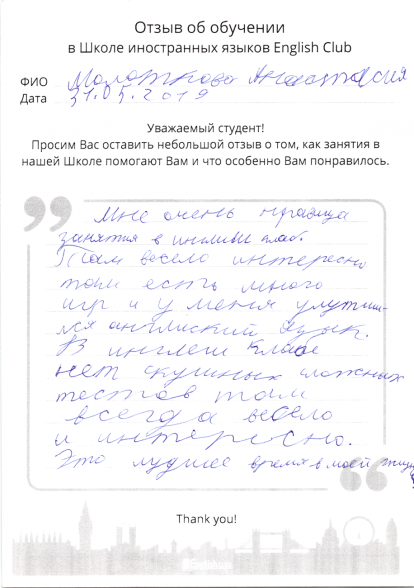 Отзыв об обучении
в Школе иностранных языков English Club
ФИО Молоткова Анастасия
Дата 31.05.2019
Уважаемый студент!
Просим Вас оставить небольшой отзыв о том, как занятия в
нашей Школе помогают Вам и что особенно Вам понравилось.
Мне очень нравица
занятия в инглиш клаб.
Там весело интересно
там есть много
игр и у меня улутши-
лся англиский язык.
В инглеш клабе
нет скушных сложных
тестов там
всегда весело
и интересно.
Это лудшее время в моей
Thank you!